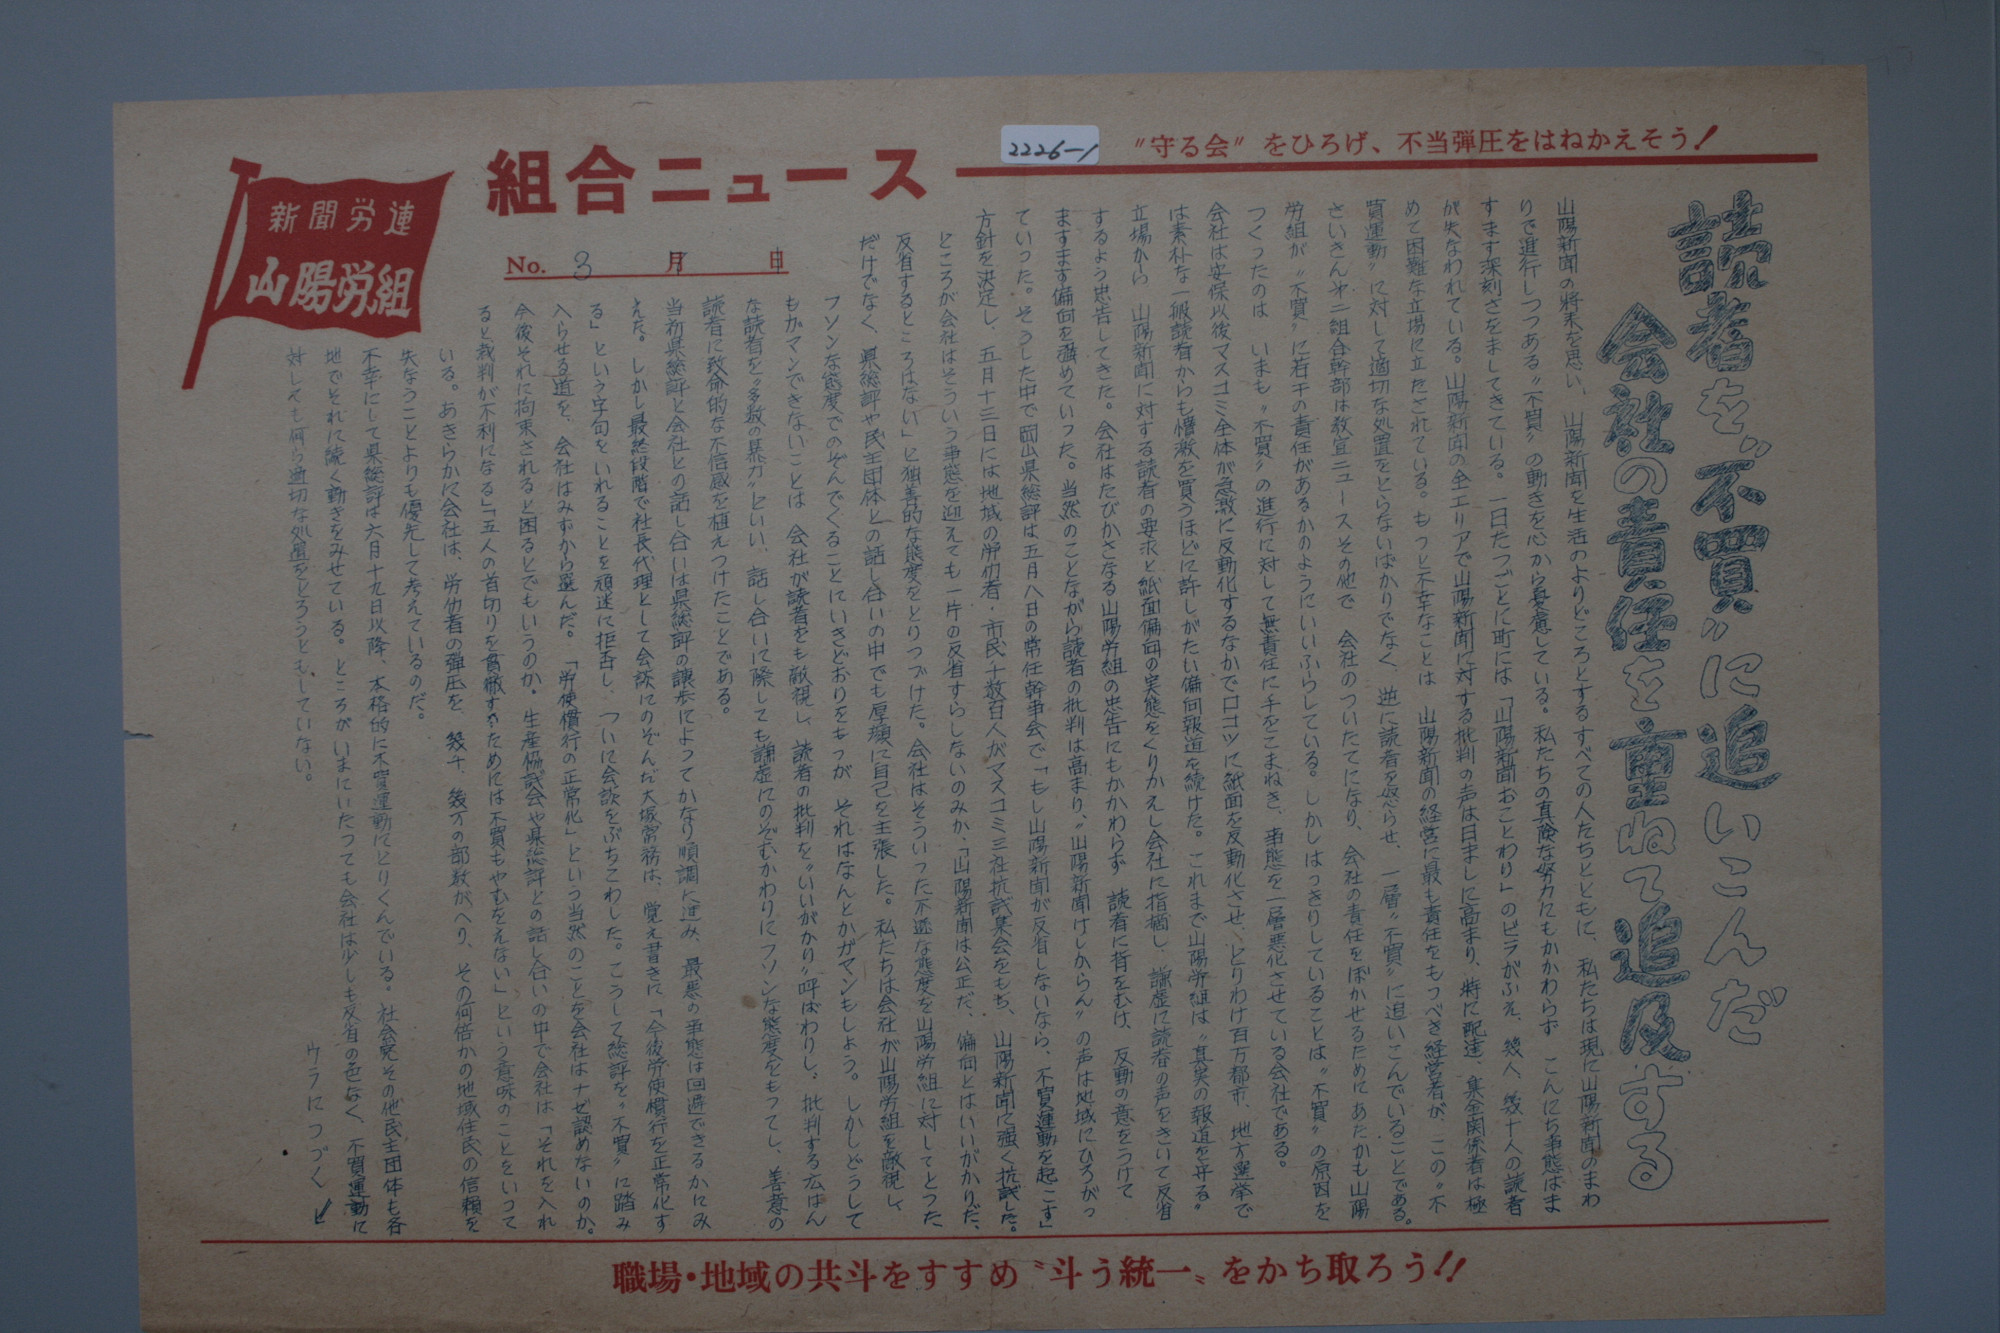 2226-1
"守る会"をひろげ、不当弾圧をはねかえそう!
組合ニュース
新聞労連
山陽労組
No. 3 月 日
読者を"不買"に追いこんだ
会社の責任を重ねて追及する
山陽新聞の将来を思い、山陽新聞を生活のよりどころとするすべての人たちとともに、私たちは現に山陽新聞のまわ
りで進行しつつある"不買"の動きを心から憂慮している。私たちの真険な努力にもかかわらず こんにち事態はま
すます深刻さをましてきている。一日たつごとに町には「山陽新聞おことわり」のビラがふえ、幾人、幾十人の読者
が失なわれている。山陽新聞の全エリアで山陽新聞に対する批判の声は日ましに高まり、特に配達、集金関係者は極
めて困難な立場に立たされている。もっと不幸なことは 山陽新聞の経営に最も責任をもつべき経営者が、この"不
買運動"に対して適切な処置をとらないばかりでなく、逆に読者を怒らせ、一層"不買"に追いこんでいることである。
さいきん第二組合幹部は教宣ニュースその他で 会社のついたてになり、会社の責任をぼかせるためにあたかも山陽
労組が"不買"に若干の責任があるかのようにいいふらしている。しかしはっきりしていることは"不買"の原因を
つくったのは いまも"不買"の進行に対して無責任に手をこまねき、事態を一層悪化させている会社である。
会社は安保以後マスコミ全体が急激に反動化するなかでロコツに紙面を反動化させ、とりわけ百万都市、地方選挙で
は素朴な一般読者からも憎激を買うほどに許しがたい偏向報道を続けた。これまで山陽労組は"真実の報道を守る"
立場から 山陽新聞に対する読者の要求と紙面偏向の実態をくりかえし会社に指摘し、謙虚に読者の声をきいて反省
するよう忠告してきた。会社はたびかさなる山陽労組の忠告にもかかわらず 読者に背をむけ、反動の意をうけて
ますます偏向を強めていった。当然のことながら読者の批判は高まり、"山陽新聞けしからん"の声は地域にひろがっ
ていった。そうした中で岡山県総評は五月八日の常任幹事会で「もし山陽新聞が反省しないなら、不買運動を起こす」
方針を決定し、五月十三日には地域の労仂者・市民、千数百人がマスコミ三社抗議集会をもち、山陽新聞に強く抗議した。
ところが会社はそういう事態を迎えても一片の反省すらしないのみか、「山陽新聞は公正だ、偏向とはいいがかりだ、
反省するところはない」と独善的な態度をとりつづけた。会社はそういった不遜な態度を山陽労組に対してとった
だけでなく、県総評や民主団体との話し合いの中でも厚顔に自己を主張した。私たちは会社が山陽労組を敵視し
フソンな態度でのぞんでくることにいきどおりをもつが それはなんとかガマンもしよう。しかしどうして
もガマンできないことは 会社が読者をも敵視し、読者の批判を"いいがかり"呼ばわりし、批判する広はん
な読者を"多数の暴力"といい、話し合いに際しても謙虚にのぞむかわりにフソンな態度をもってし、善意の
読者に致命的な不信感を植えつけたことである。
当初県総評と会社との話し合いは県総評の譲歩によってかなり順調に進み、最悪の事態は回避できるかにみ
えた。しかし最終段階で社長代理として会談にのぞんだ大塚常務は、覚え書きに、「今後労使慣行を正常化す
る」という字句をいれることを頑迷に拒否し、ついに会談をぶちこわした。こうして総評を"不買"に踏み
入らせる道を、会社はみずから選んだ。「労使慣行の正常化」という当然のことを会社はナゼ認めないのか。
今後それに拘束されると困るとでもいうのか。生産協議会や県総評との話し合いの中で会社は「それを入れ
ると裁判が不利になる」「五人の首切りを貫徹するためには不買もやむをえない」という意味のことをいって
いる。あきらかに会社は、労仂者の弾圧を、幾千、幾万の部数がへり、その何倍かの地域住民の信頼を
失なうことよりも優先して考えているのだ。
不幸にして県総評は六月十九日以降、本格的に不買運動にとりくんでいる。社会党その他民主団体も各
地でそれに続く動きをみせている。ところが いまにいたっても会社は少しも反省の色なく、不買運動に
対しても何ら適切な処置をとろうともしていない。
ウラにつづく
職場・地域の共斗をすすめ"斗う統一"をかち取ろう!!